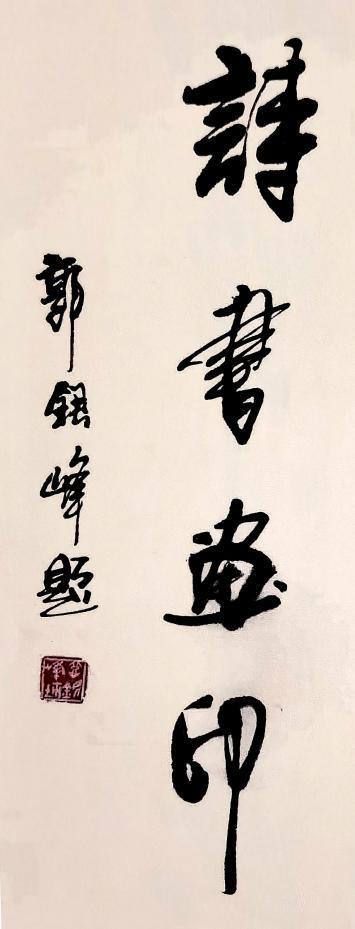 詩書畫印
郭銀峰題